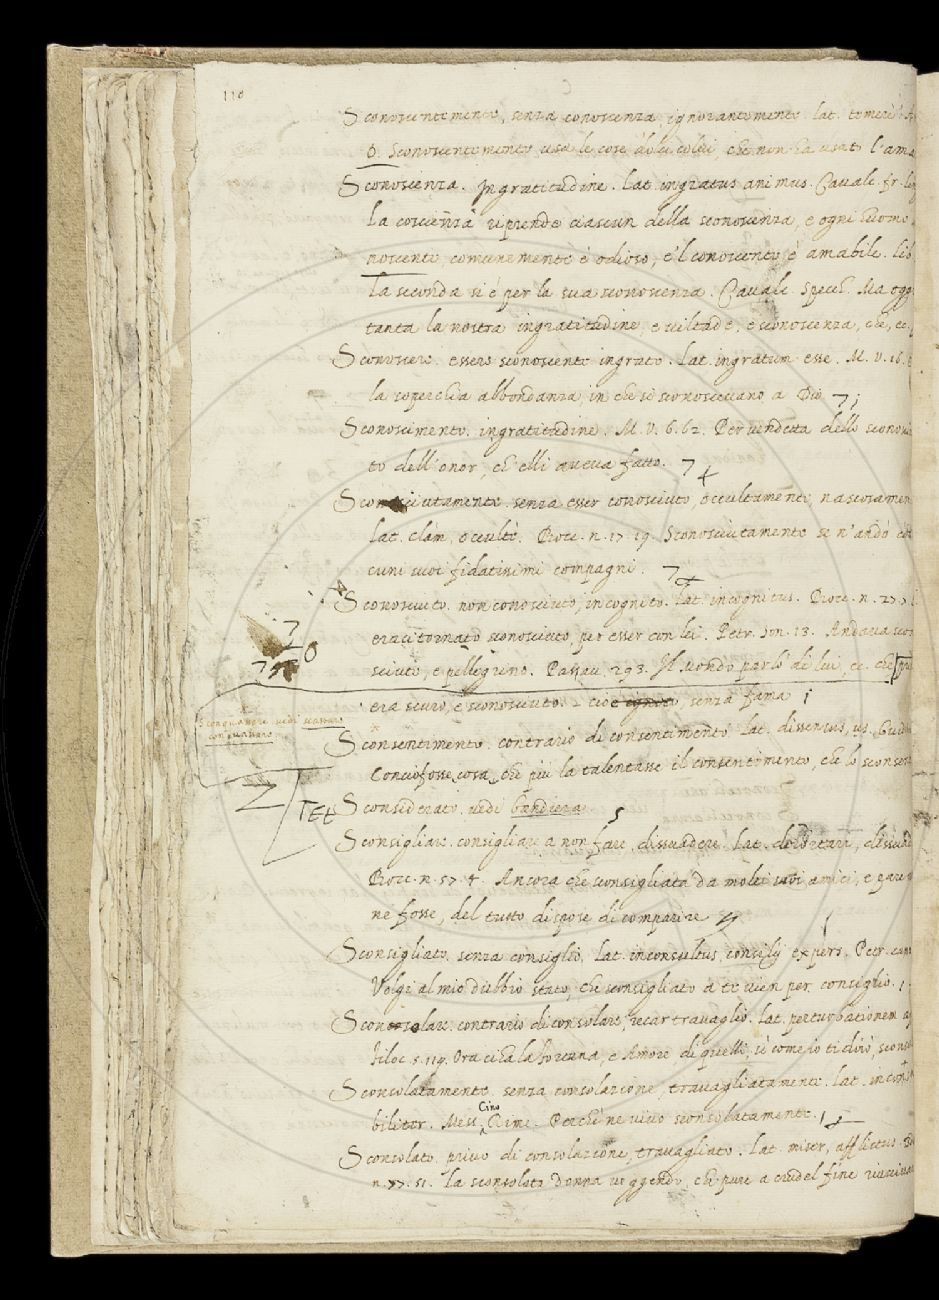 110
Sconoscentemente, senza conoscenza ignorantemente. lat. temerè.
Sconoscentemente usa le cose colui, che non ha usato l'ama
Sconoscenza. Ingratitudine. Lat. ingratus animus. Cavalc. fr. lin
la coscienza riprende ciascun della sconoscenza, e ogni huomo
noscente comunemente è odioso, e'l conoscente è amabile. Lib
La seconda si è per la sua sconoscenza. Cavalc. Spech. Ma ogg
tanta la nostra ingratitudine, e viltade, e sconoscenza, che, ec.
Sconoscere. essere sconoscente ingrato. Lat. ingratum esse. M. V. 16.
la soperchia abbondanza, in che si sconoscevano a Dio
Sconoscimento. ingratitudine. M. V. 6. 62. Per vendetta dello sconosci
to dell'onor, ch'elli aveva fatto.
Sconosciutamente. senza esser conosciuto, occultamente, nascosamen
lat. clàm, occultè. Bocc. n. 17. 19. Sconosciutamente se n'andò con
cuni suoi fidatissimi compagni.
Sconosciuto. non conosciuto, incognito. Lat. incognitus. Bocc. n. 27.
eraci tornato sconosciuto, per esser con lei. Petr. Son. 13. Andava scon
sciuto, e pellegrino. Passav. 293. Il mondo parlò di lui, ec. che
era scuro, e sconosciuto. cioè senza fama
Sconquassare vedi scassare
conquassare
Sconsentimento. contrario di consentimento. Lat. dissensus, us. Guid
Conciofosse cosa, che più la talentasse il consentimento, che lo sconsen
Sconsiderato. vedi bandiera.
Sconsigliare. consigliare a non fare, dissuadere. Lat. dehortari, dissuad
Bocc. n. 57. 4. Ancora che sconsigliata da molti suoi amici, e pare
ne fosse, del tutto dispose di comparire
Sconsigliato. senza consiglio. Lat. inconsultus, consilij expers. Petr. canz
Volgi al mio dubbio stato, che sconsigliato a te vien per consiglio.
Sconsolare. contrario di consolare, recar travaglio. Lat. perturbationem a
filoc. 5. 119. Ora ci ha la fortuna, e Amore di quelli, sì come io ti dirò, scons
Sconsolatamente. senza consolazione, travagliatamente. Lat. incons
biliter. Mess. Cino Rime. Perchè ne vivo sconsolatamente.
Sconsolato. privo di consolazione, travagliato. Lat. miser, afflictus.
n. 77. 51. La sconsolata donna veggendo, che pure a crudel fine riusciva